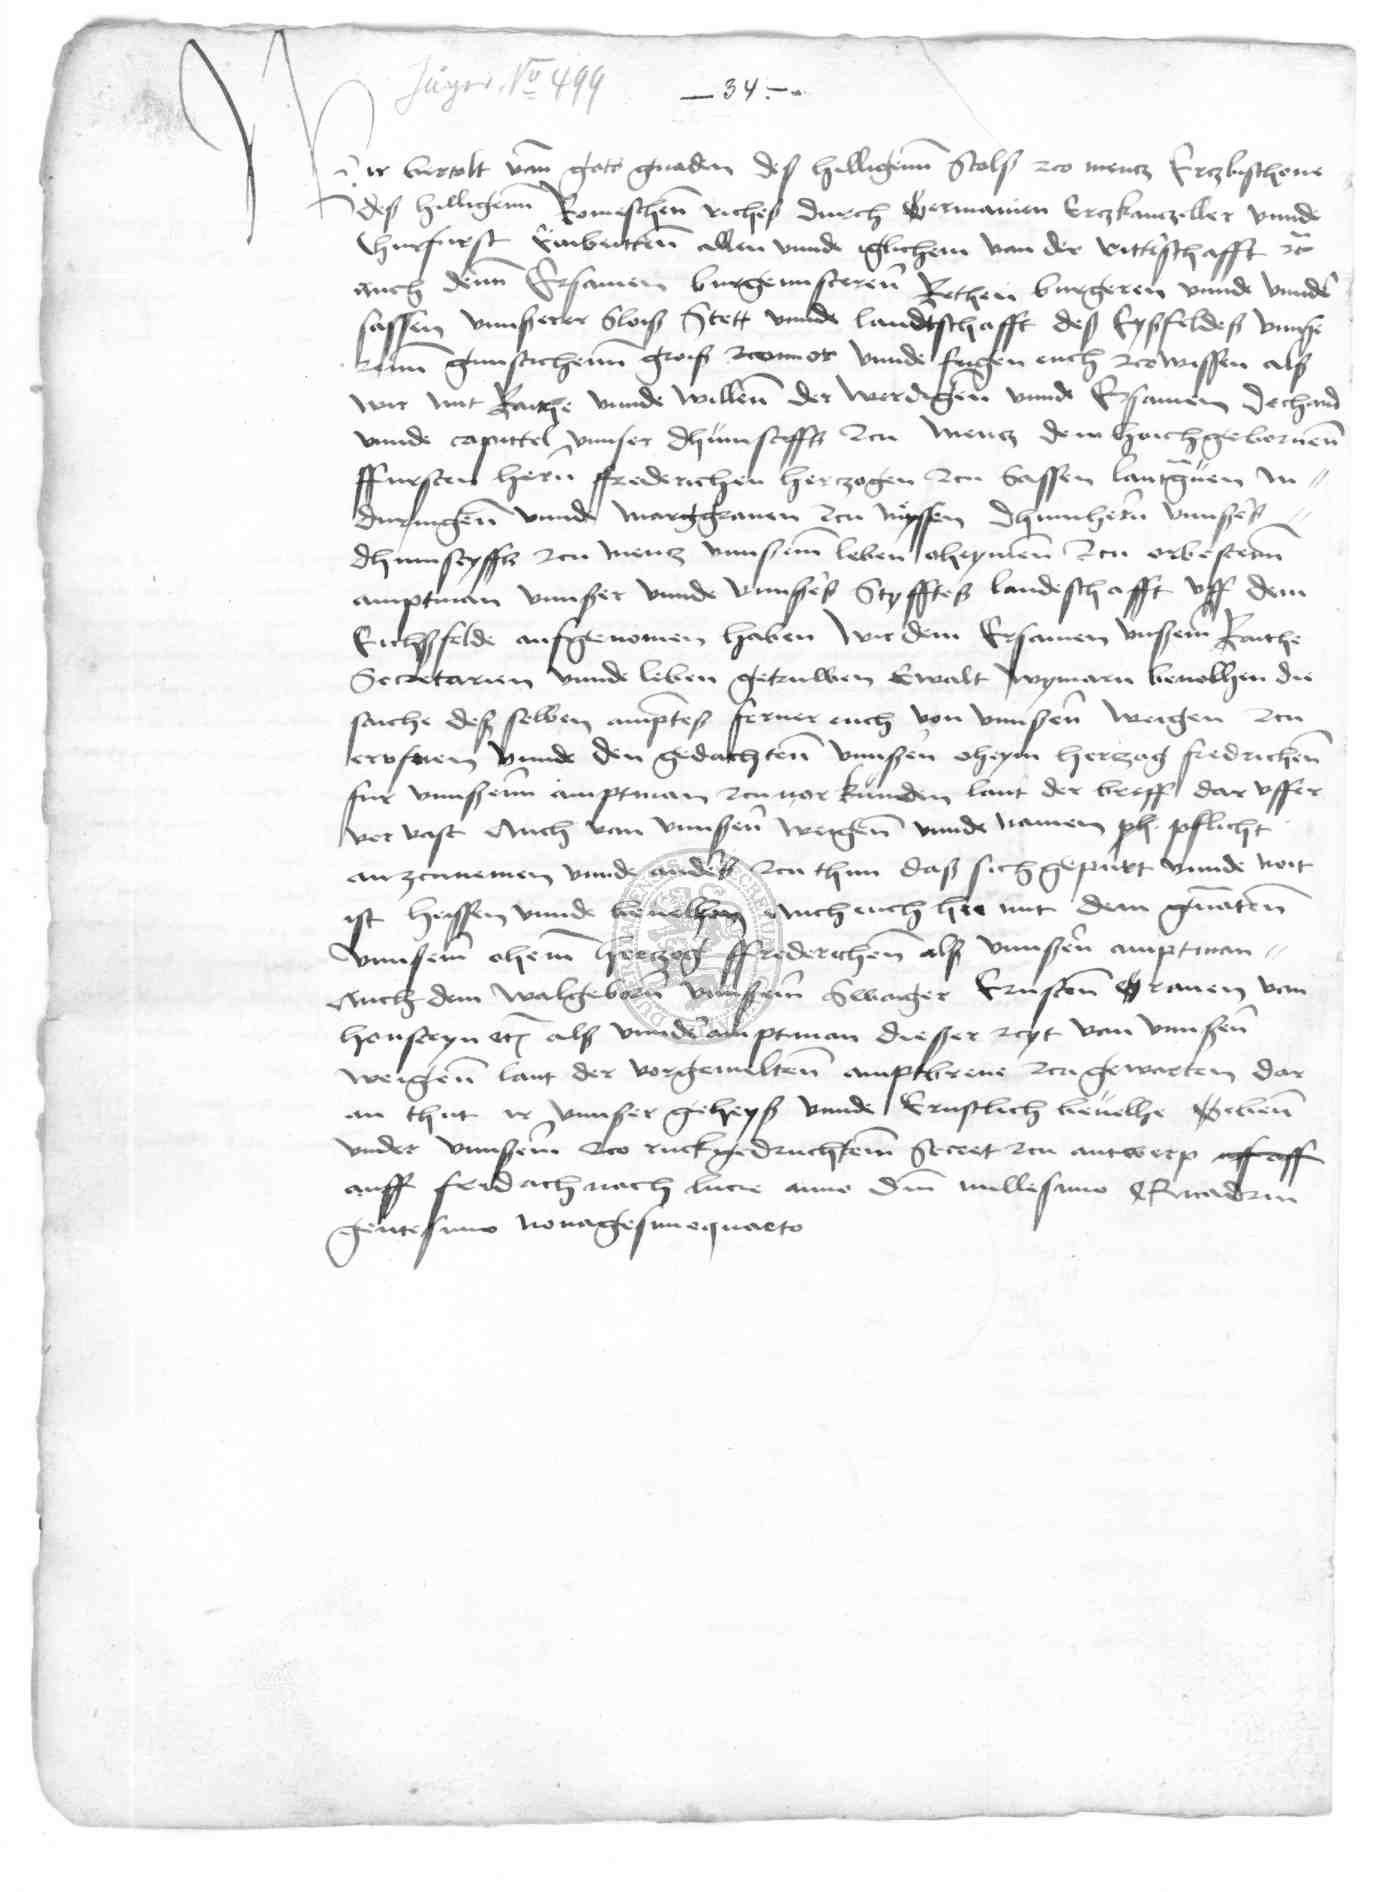 Jäger. No 499
— 34. —
Wir bertolt van gots gnaden deß hilligenn Stolß zco mentz Ertzbischoue
deß hilligenn Romeschenn richeß durch Germanien Ertzkanczeller vnnde
Churfurst Embeittenn allen vnnde iglichem van der ritterschafft zc
auch denn Ersamen burgemsterenn Rethen burgeren vnnde vnnder
sassen vnnserer Sloiß Stett vnnde landtschafft deß Eyßfeldeß vnnße
renn gunstichenn groiß zcuuor vnnde fugen euch zco wissen alß
wir mit Raithe vnnde willenn der werdigenn vnnde Ersamen Dechand
vnnde capittel vnnser dhumstiffts zcu mentz dem hoichgebornenn
ffursten hern ffrederichen hertzogen zcu Sassen lantgrauen in
duringenn vnnde marggrauen zcu myssen Dhumhern vnnserß
dhumstyffts zcu mentz vnnserm leben oheymenn zcu
amptman vnnser vnnde vnnserß Styffteß landeschafft vff dem
Eichßfelde aufgenomen haben wir dem Ersamen vnserm Raithe
Secretarien vnnde leben getruwen Ewalt wymarn beuolhen die
saiche deß selben ampteß ferner euch von vnnsern weigen zcu
eroffnen vnnde den gedachtenn vnnsern oheym hertzog fredrichenn
fur vnnsernn amptman zcuuorkunden lant der breff dar vffer
ver vast Auch van vnnsern weigenn vnnde namen ph. pflicht
anzcunemen vnnde anderß zcu thun daß sich gepurt vnnde noit
ist heissen vnnde beuelhen Auch euch hie mit dem gnantenn
vnnserm ohemn hertzog ffrederichenn alß vnnsern amptman
Auch dem walgebornn vnnserm Swager Ernstenn Grauen van
honsteyn etc alß vnnder amptman dießer zcyt van vnnsern
weigenn laut der vorgemeltenn amptbreue zcu gewarten dar
an thut ir vnnser geheyß vnnde Ernstlich beuelhe Gebenn
vnder vnnserm zco ruckgedruchtem Secret zcu antwerp
auff fridach nach lucie anno dm millesimo Quadrin
gentesimo nonagesimoquarto